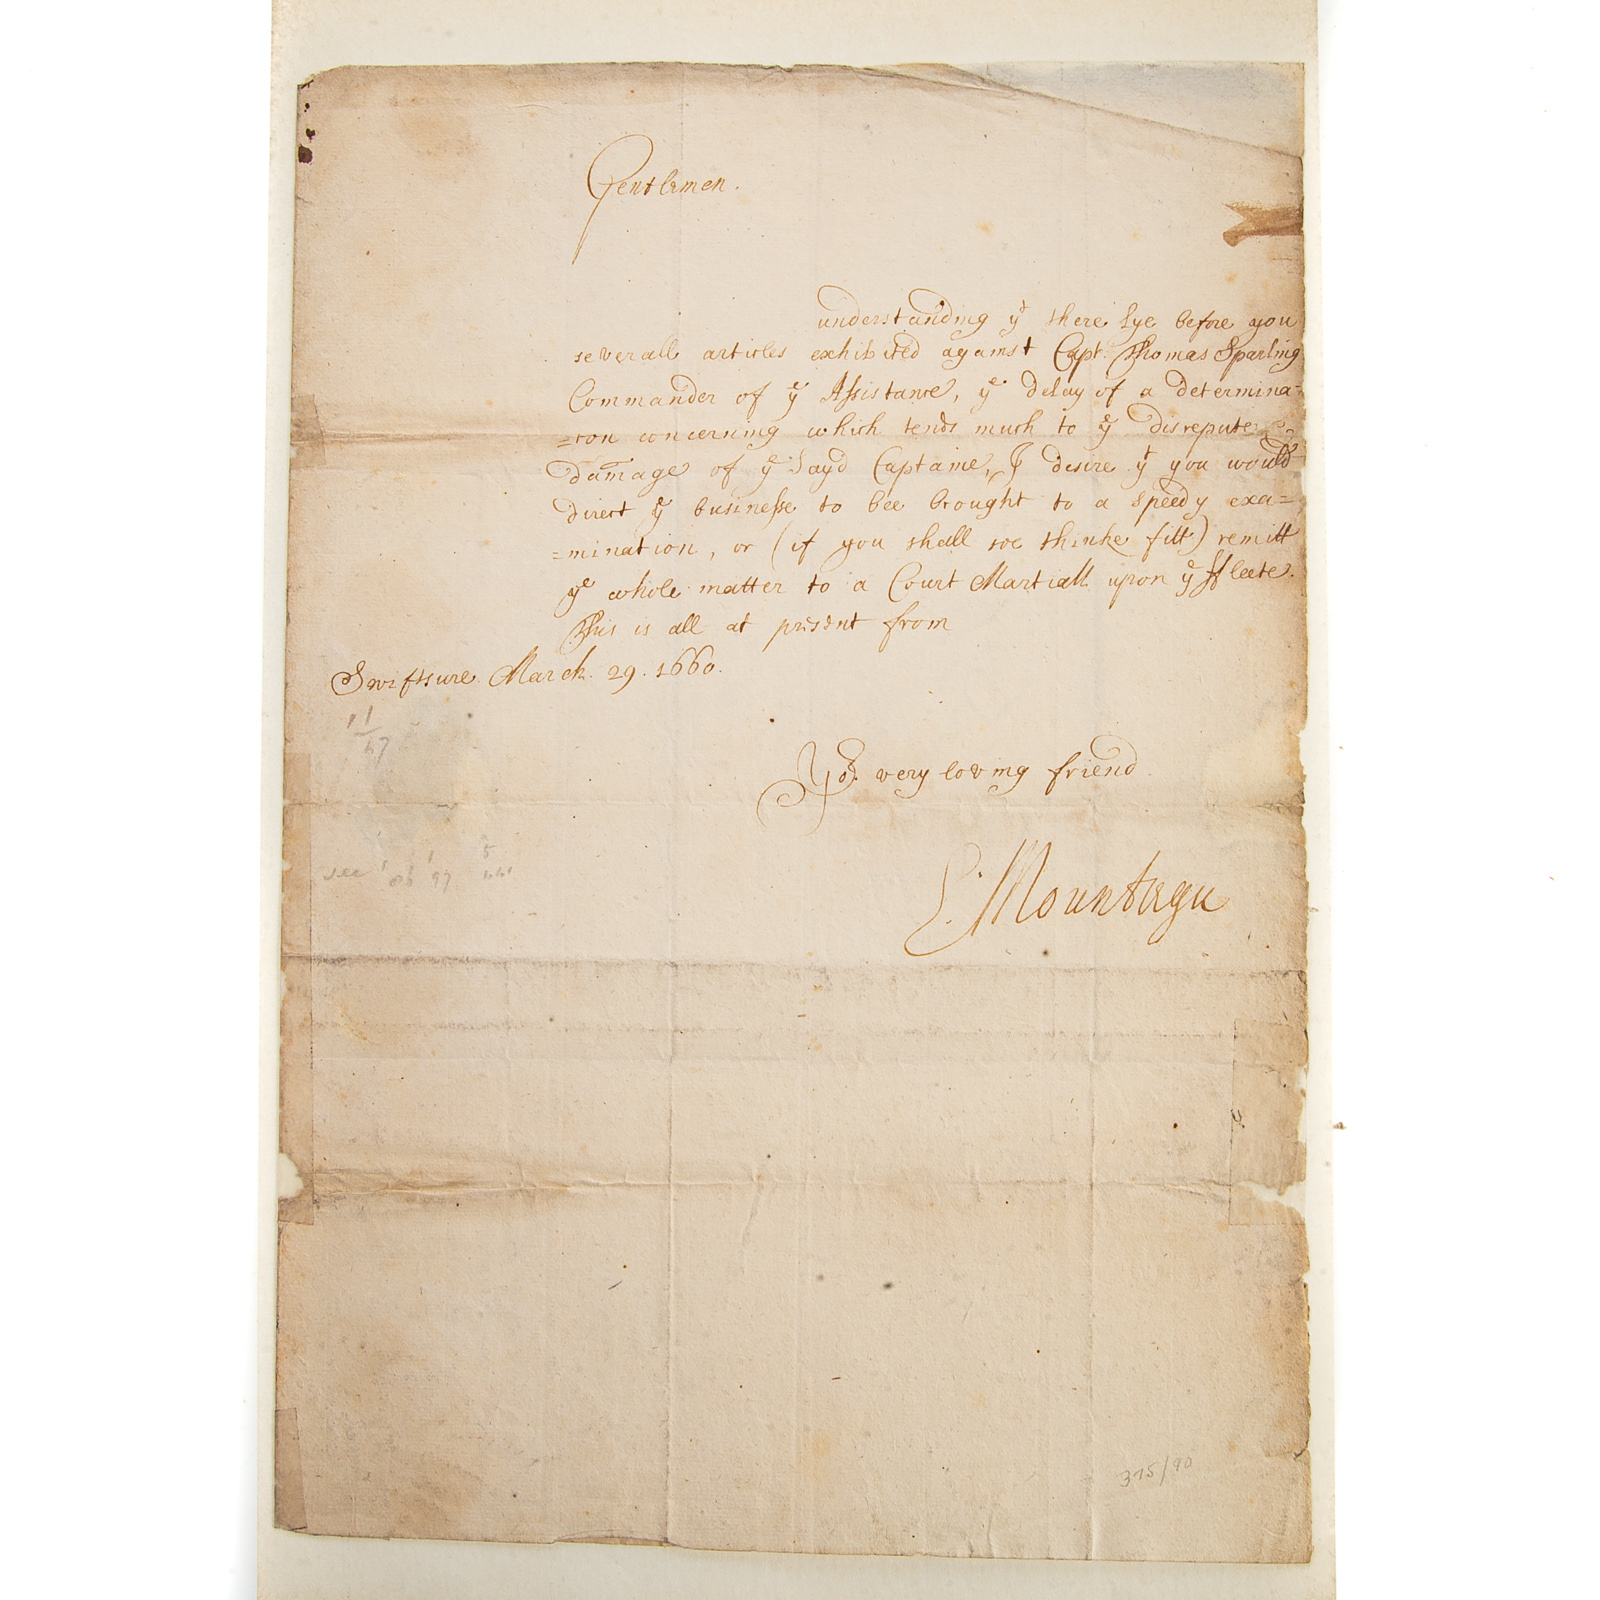 Gentlemen.
understanding yt there lye before you
severall articles exhibited against Capt. Thomas Sparling
Commander of ye Assistance, ye delay of a determina=
=con concerning which tends much to ye disrepute &
damage of ye sayd Captaine, I desire yt you would
direct ye businesse to bee brought to a speedy exa=
=mination, or (if you shall soe thinke fitt) remitt
ye whole matter to a Court Martiall upon ye ffleete.
This is all at present from
Swiftsure March. 29. 1660.
Yor. very loving friend
E: Mountagu
375/90